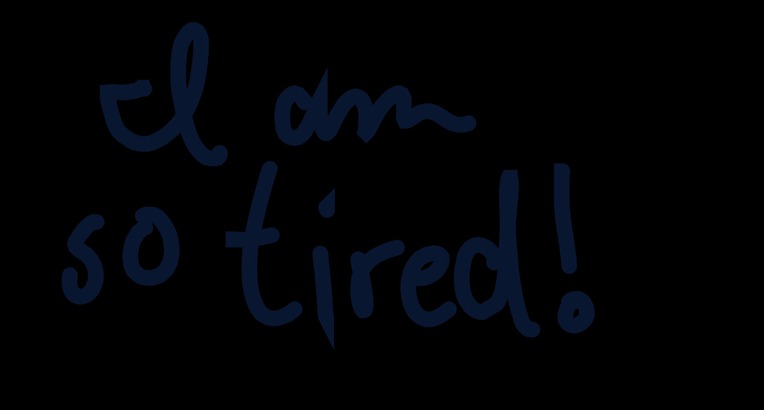 I am
so tired!